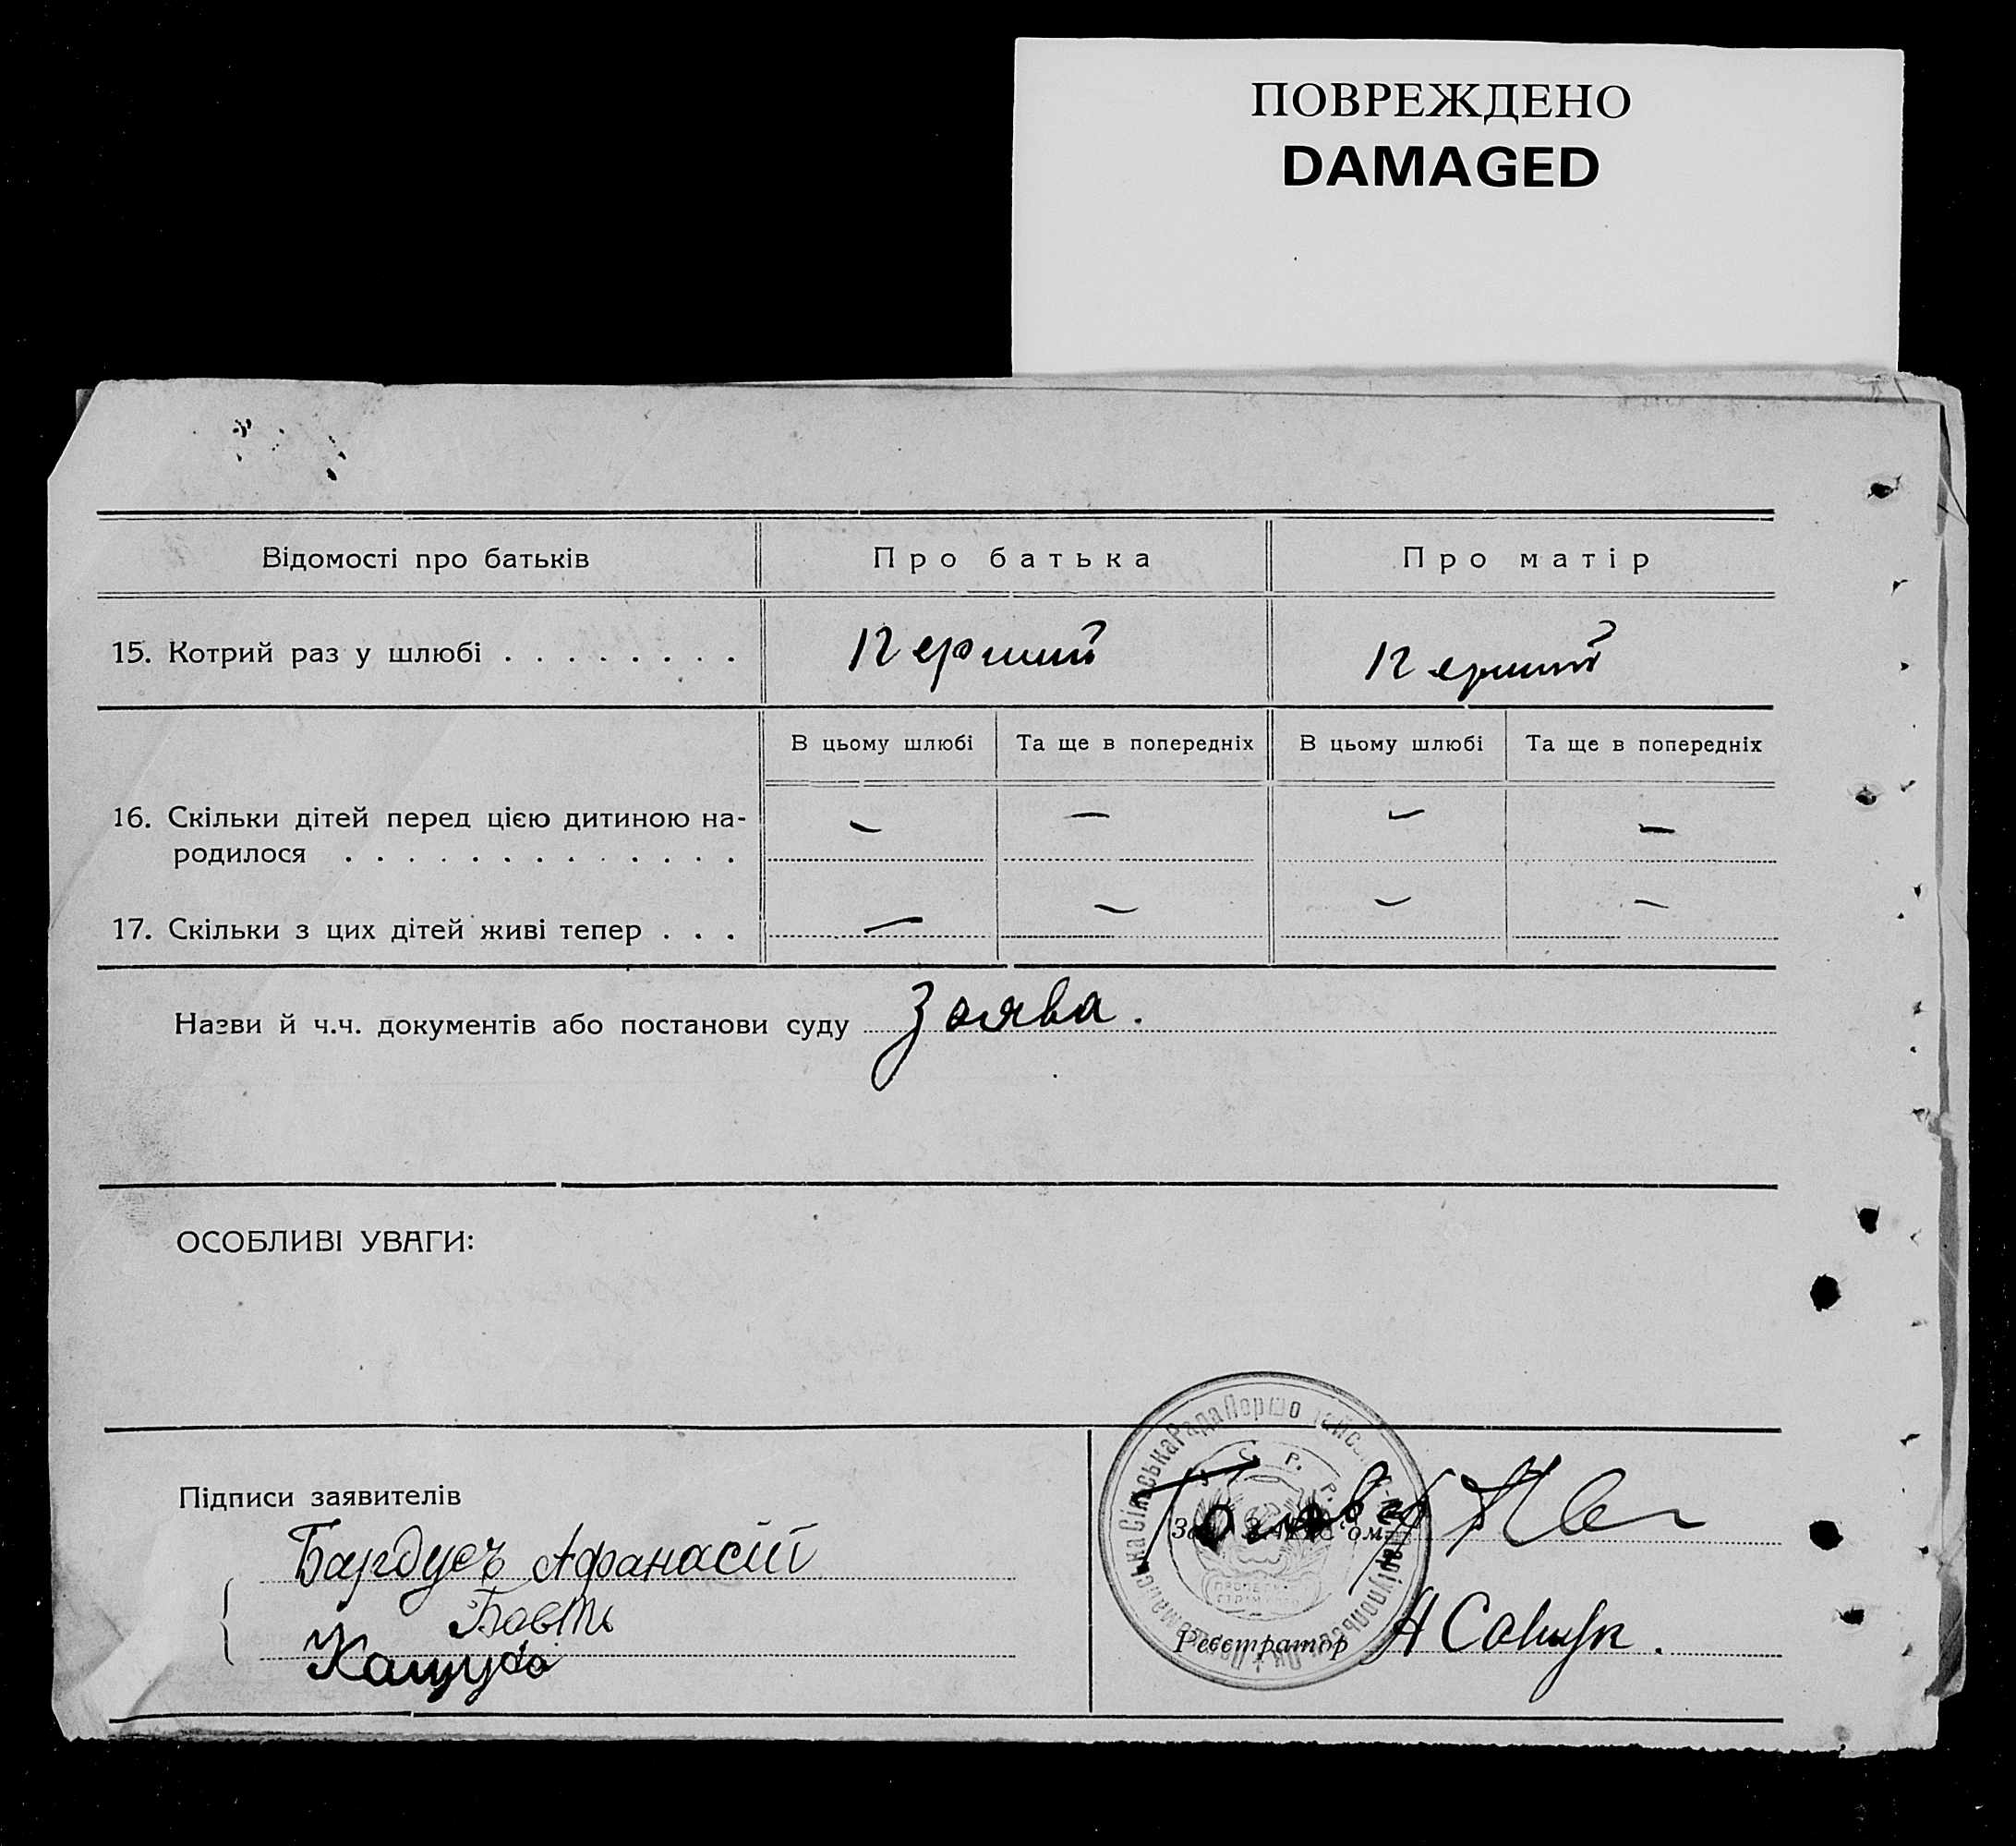 ПОВРЕЖДЕНО
DAMAGED
Відомості про батьків
Про батька
Про матір
15. Котрий раз у шлюбі . . . . . . . .
Перший
Перший
В цьому шлюбі
Та ще в попередніх
В цьому шлюбі
Та ще в попередніх
16. Скільки дітей перед цією дитиною на-
родилося . . . . . . . . . . . .
— — — —
17. Скільки з цих дітей живі тепер . . .
— — — —
Назви й ч.ч. документів або постанови суду Заява.
ОСОБЛИВІ УВАГИ:
Підписи заявителів
Афанасій
Реєстратор